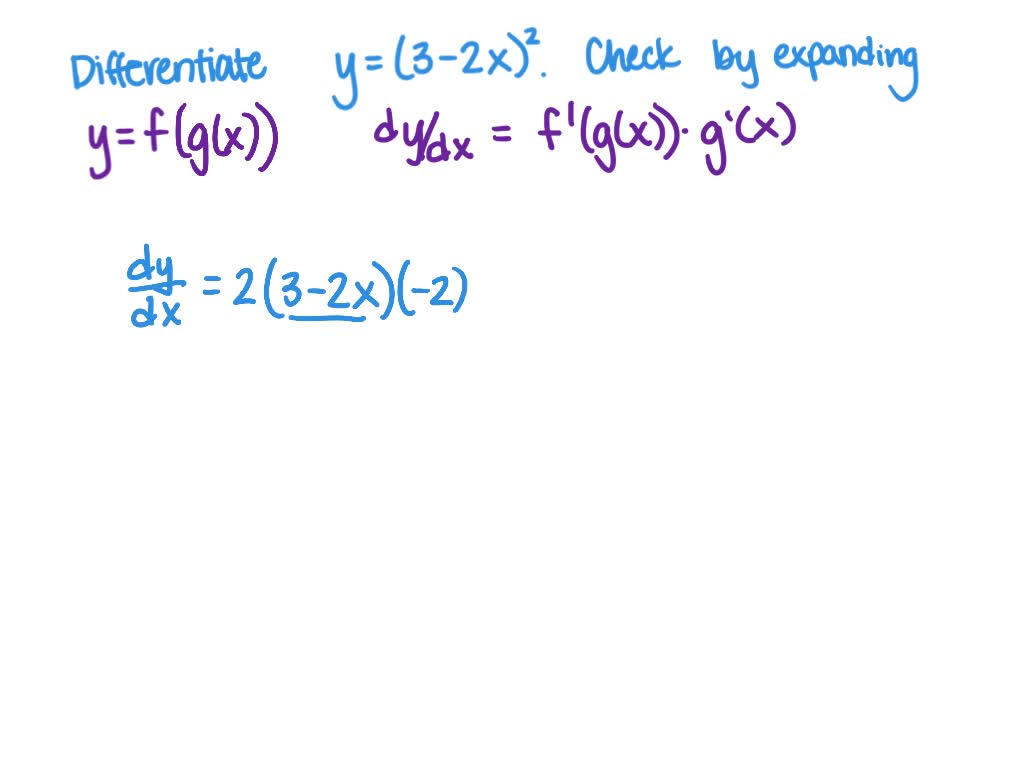 Differentiate y = (3-2x)². Check by expanding
y = f(g(x)) dy/dx = f'(g(x))·g'(x)
dy/dx = 2(3-2x)(-2)